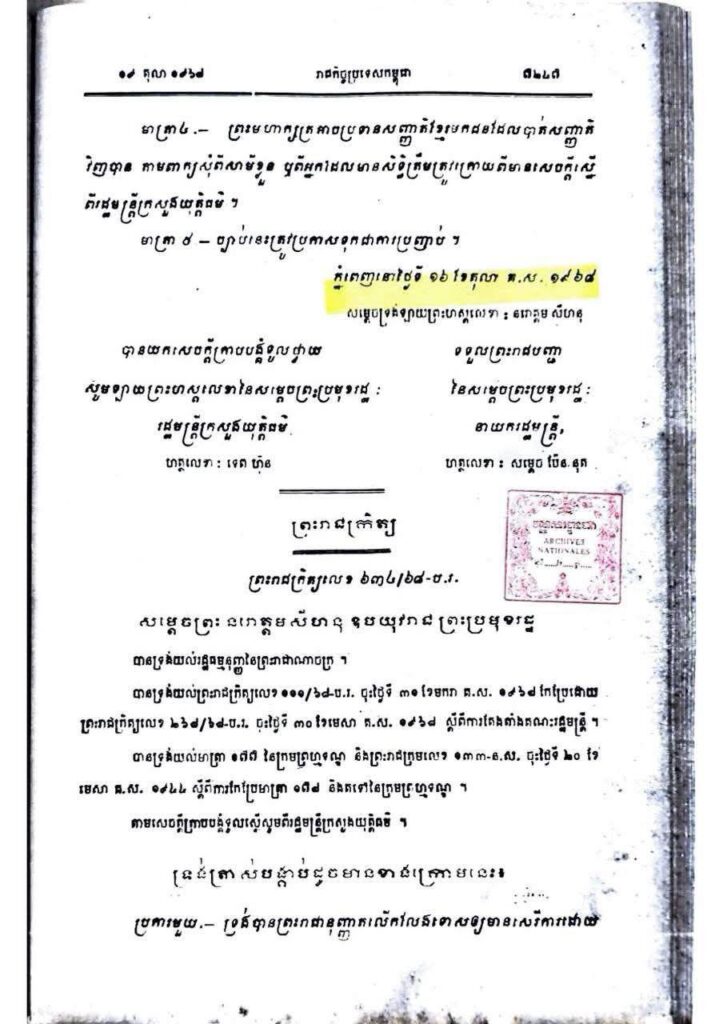 ១៩ តុលា ១៩៦៨ រាជកិច្ចប្រទេសកម្ពុជា ៧២៤៧
មាត្រា៤.— ព្រះមហាក្សត្រអាចប្រទានសញ្ញាតិខ្មែរមកជនដែលបាត់សញ្ញាតិ
វិញបាន តាមពាក្យសុំពីសាមីខ្លួន ឬពីអ្នកដែលមានសិទ្ធិត្រឹមត្រូវក្រោយពីមានសេចក្តីស្នើ
ពីរដ្ឋមន្ត្រីក្រសួងយុត្តិធម៌ ។
មាត្រា ៥ — ច្បាប់នេះត្រូវប្រកាសទុកជាការប្រញាប់ ។
ភ្នំពេញនៅថ្ងៃទី ១៦ ខែតុលា គ.ស. ១៩៦៨
សម្តេចទ្រង់ឡាយព្រះហស្តលេខា : នរោត្តម សីហនុ
បានយកសេចក្តីក្រាបបង្គំទូលថ្វាយ ទទួលព្រះរាជបញ្ជា
សូមឡាយព្រះហស្តលេខានៃសម្តេចព្រះប្រមុខរដ្ឋ : នៃសម្តេចព្រះប្រមុខរដ្ឋ :
រដ្ឋមន្ត្រីក្រសួងយុត្តិធម៌ នាយករដ្ឋមន្ត្រី,
ហត្ថលេខា : ទេព ហ៊ុន ហត្ថលេខា : សម្តេច ប៉ែន.នុត
ព្រះរាជក្រិត្យ
ARCHIVES
NATIONALES
ព្រះរាជក្រិត្យលេខ ៦៣៤/៦៨-ប.រ.
សម្តេចព្រះ នរោត្តមសីហនុ ឧបយុវរាជ ព្រះប្រមុខរដ្ឋ
បានទ្រង់យល់រដ្ឋធម្មនុញ្ញនៃព្រះរាជាណាចក្រ ។
បានទ្រង់យល់ព្រះរាជក្រិត្យលេខ ១១១/៦៨-ប.រ. ចុះថ្ងៃទី ៣១ ខែមករា គ.ស. ១៩៦៨ កែប្រែដោយ
ព្រះរាជក្រិត្យលេខ ២៦៨/៦៨-ប.រ. ចុះថ្ងៃទី ៣០ ខែមេសា គ.ស. ១៩៦៨ ស្តីពីការតែងតាំងគណះរដ្ឋមន្ត្រី ។
បានទ្រង់យល់មាត្រា ១៧៧ នៃក្រមព្រហ្មទណ្ឌ និងព្រះរាជក្រមលេខ ១៣៣-ន.ស. ចុះថ្ងៃទី ២០ ខែ
មេសា គ.ស. ១៩៤៤ ស្តីពីការកែប្រែមាត្រា ១៧៨ និងតទៅនៃក្រមព្រហ្មទណ្ឌ ។
តាមសេចក្តីក្រាបបង្គំទូលស្នើសូមពីរដ្ឋមន្ត្រីក្រសួងយុត្តិធម៌ ។
ទ្រង់ត្រាស់បង្គាប់ដូចមានខាងក្រោមនេះ៖
ប្រការមួយ.— ទ្រង់បានព្រះរាជានុញ្ញាតលើកលែងទោសឲ្យមានសេរីការដោយ